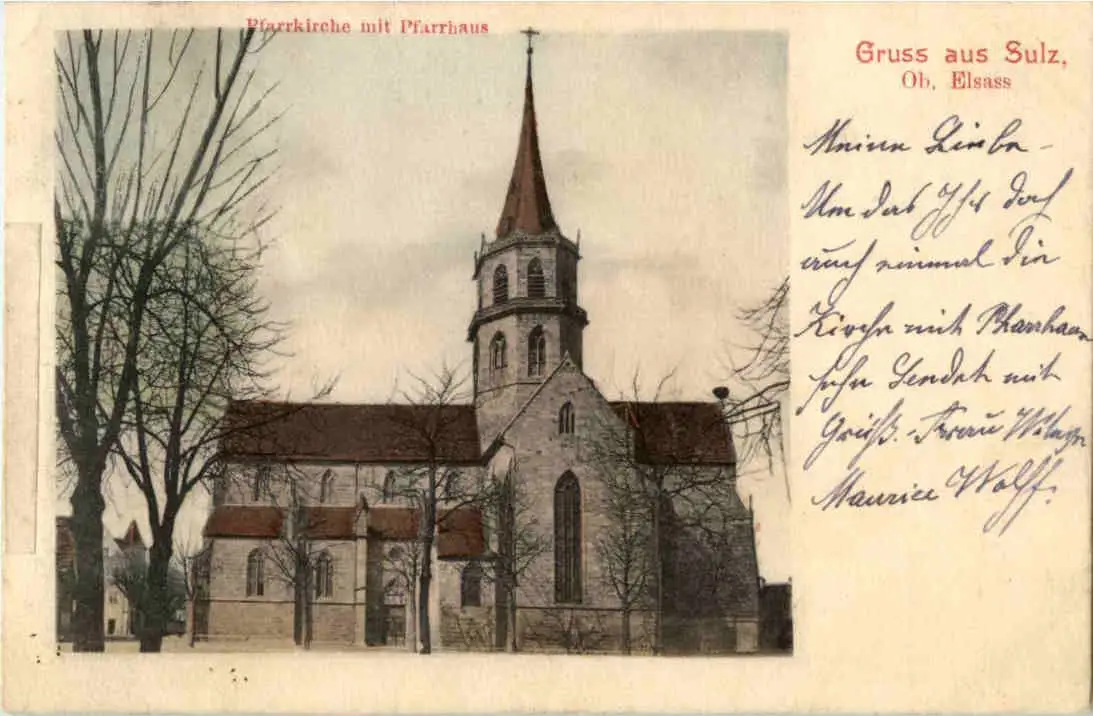 Pfarrkirche mit Pfarrhaus
Gruss aus Sulz,
Ob. Elsass
Meine Liebe -
Um das Ihr doch
auch einmal die
Kirche mit Pharrhaus
sehn Sendet mit
Grüß. Frau
Maurice Wolff.